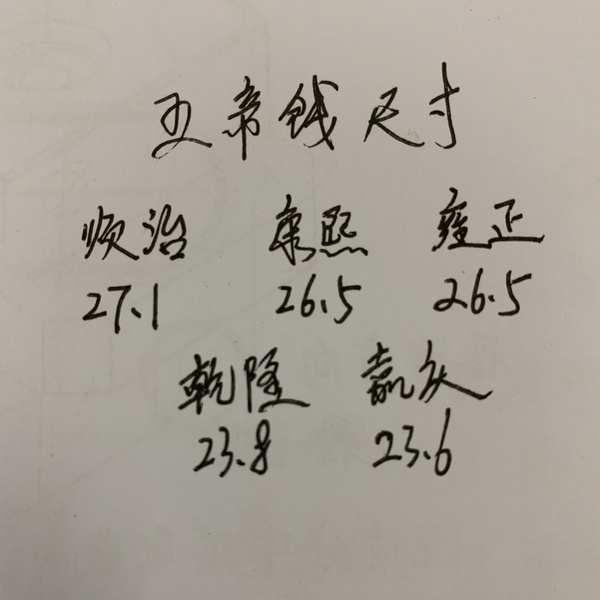 五帝钱尺寸
顺治 康熙 雍正
27.1 26.5 26.5
乾隆 嘉庆
23.8 23.6